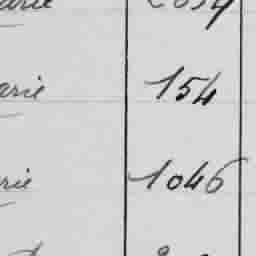 arie
arie 154
rie 1046